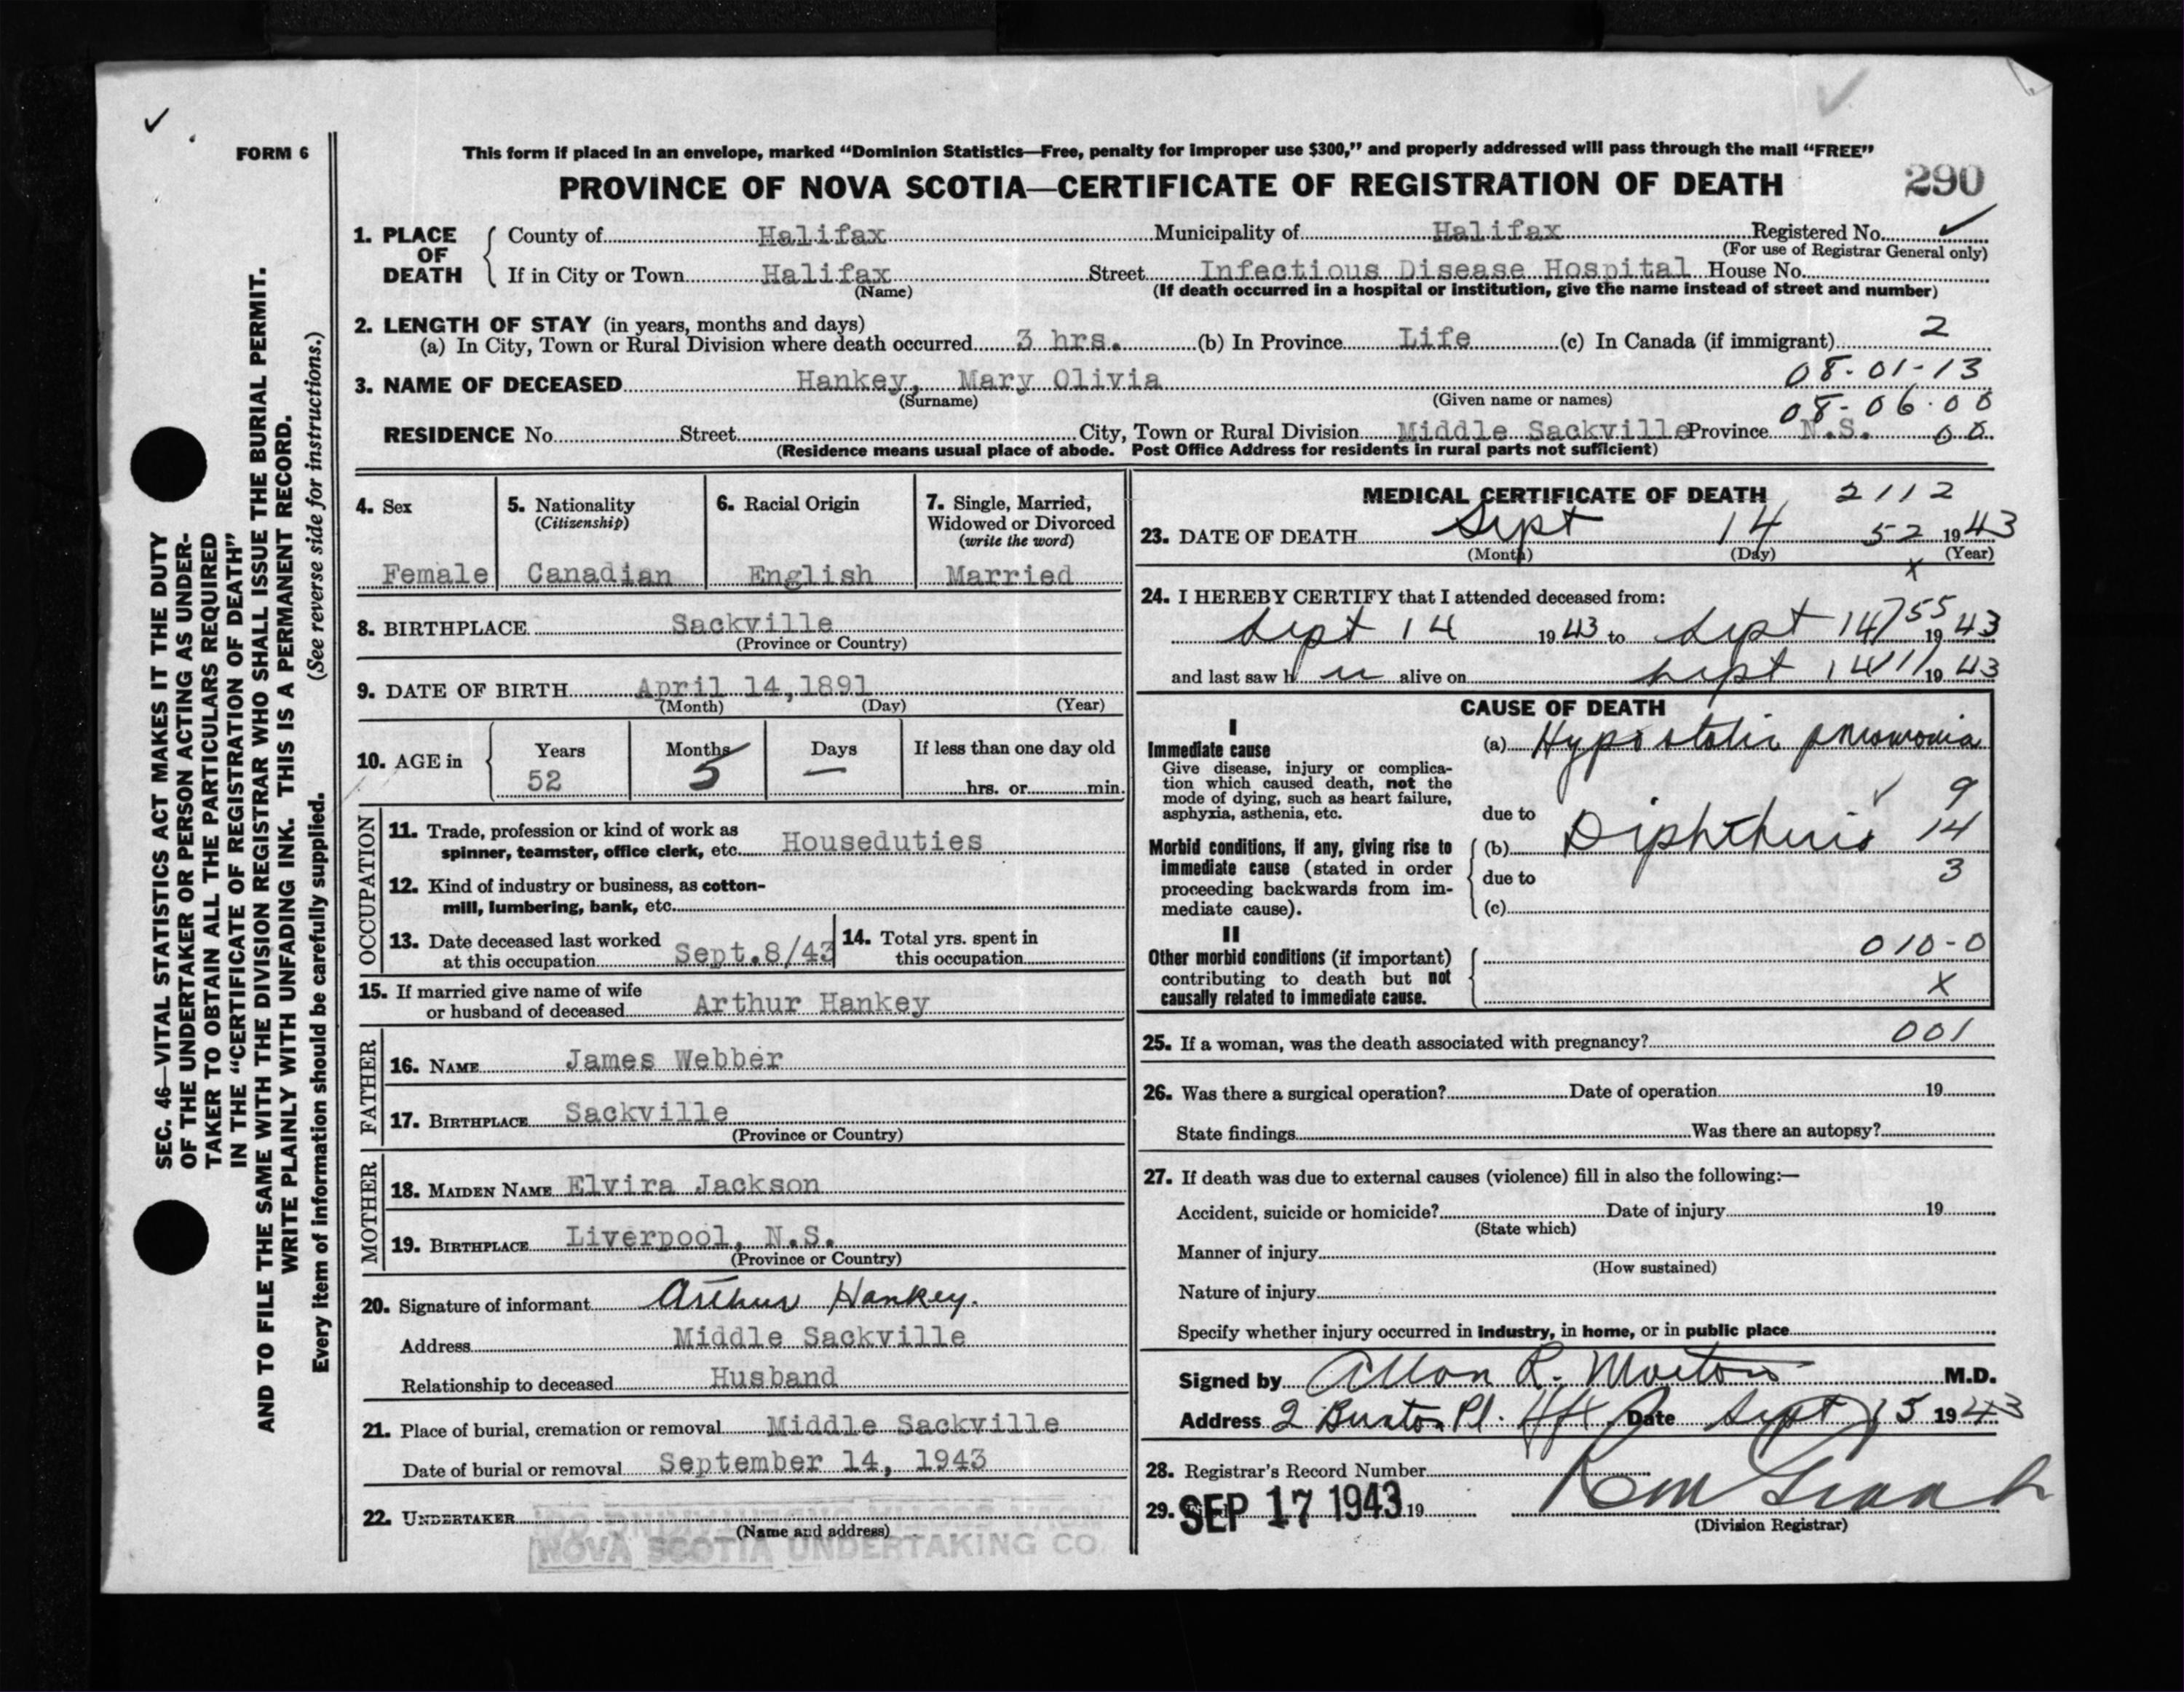 FORM 6
This form if placed in an envelope, marked “Dominion Statistics—Free, penalty for improper use $300,” and properly addressed will pass through the mail “FREE”
PROVINCE OF NOVA SCOTIA—CERTIFICATE OF REGISTRATION OF DEATH 290
1. PLACE OF DEATH
County of Halifax Municipality of Halifax Registered No. ✓
(For use of Registrar General only)
If in City or Town Halifax Street Infectious Disease Hospital House No.
(Name) (If death occurred in a hospital or institution, give the name instead of street and number)
2. LENGTH OF STAY (in years, months and days) 2
(a) In City, Town or Rural Division where death occurred 3 hrs. (b) In Province Life (c) In Canada (if immigrant)
08-01-13
3. NAME OF DECEASED Hankey, Mary Olivia
(Surname) (Given name or names)
08-06-00
RESIDENCE No. Street City, Town or Rural Division Middle Sackville Province N.S. 00
(Residence means usual place of abode. Post Office Address for residents in rural parts not sufficient)
4. Sex
Female
5. Nationality
(Citizenship)
Canadian
6. Racial Origin
English
7. Single, Married,
Widowed or Divorced
(write the word)
Married
8. BIRTHPLACE Sackville
(Province or Country)
9. DATE OF BIRTH April 14, 1891
(Month) (Day) (Year)
10. AGE in
Years Months Days If less than one day old
52 5 — hrs. or min.
OCCUPATION
11. Trade, profession or kind of work as
spinner, teamster, office clerk, etc. Houseduties
12. Kind of industry or business, as cotton-
mill, lumbering, bank, etc.
13. Date deceased last worked
at this occupation Sept.8/43
14. Total yrs. spent in
this occupation
15. If married give name of wife
or husband of deceased Arthur Hankey
FATHER
16. NAME James Webber
17. BIRTHPLACE Sackville
(Province or Country)
MOTHER
18. MAIDEN NAME Elvira Jackson
19. BIRTHPLACE Liverpool, N.S.
(Province or Country)
20. Signature of informant Arthur Hankey.
Address Middle Sackville
Relationship to deceased Husband
21. Place of burial, cremation or removal Middle Sackville
Date of burial or removal September 14, 1943
22. UNDERTAKER
(Name and address)
NOVA SCOTIA UNDERTAKING CO.
MEDICAL CERTIFICATE OF DEATH 2112
23. DATE OF DEATH Sept 14 52 1943
(Month) (Day) (Year)
x
24. I HEREBY CERTIFY that I attended deceased from:
Sept 14 1943 to Sept 14 755 1943
and last saw h alive on Sept 14 11 1943
CAUSE OF DEATH
I
Immediate cause
Give disease, injury or complica-
tion which caused death, not the
mode of dying, such as heart failure,
asphyxia, asthenia, etc.
(a) Hypostatic pneumonia
✓ 9
due to
Morbid conditions, if any, giving rise to
immediate cause (stated in order
proceeding backwards from im-
mediate cause).
(b) Diphtheria 14
due to 3
(c)
II
Other morbid conditions (if important)
contributing to death but not
causally related to immediate cause.
010-0
x
25. If a woman, was the death associated with pregnancy? 001
26. Was there a surgical operation? Date of operation 19
State findings Was there an autopsy?
27. If death was due to external causes (violence) fill in also the following:—
Accident, suicide or homicide? Date of injury 19
(State which)
Manner of injury
(How sustained)
Nature of injury
Specify whether injury occurred in industry, in home, or in public place
Signed by Allan R. Morton M.D.
Address 2 Pl. Hfx. Date Sept 15 1943
28. Registrar's Record Number
29. SEP 17 1943 19
(Division Registrar)
SEC. 46—VITAL STATISTICS ACT MAKES IT THE DUTY
OF THE UNDERTAKER OR PERSON ACTING AS UNDER-
TAKER TO OBTAIN ALL THE PARTICULARS REQUIRED
IN THE “CERTIFICATE OF REGISTRATION OF DEATH”
AND TO FILE THE SAME WITH THE DIVISION REGISTRAR WHO SHALL ISSUE THE BURIAL PERMIT.
WRITE PLAINLY WITH UNFADING INK. THIS IS A PERMANENT RECORD.
Every item of information should be carefully supplied. (See reverse side for instructions.)